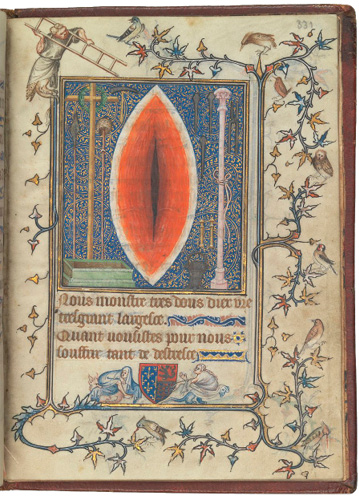 331
Nous monstre tres dous diex vie
tresgrant largesce.
Quant uousistes pour nous
souffrir tant de destresce